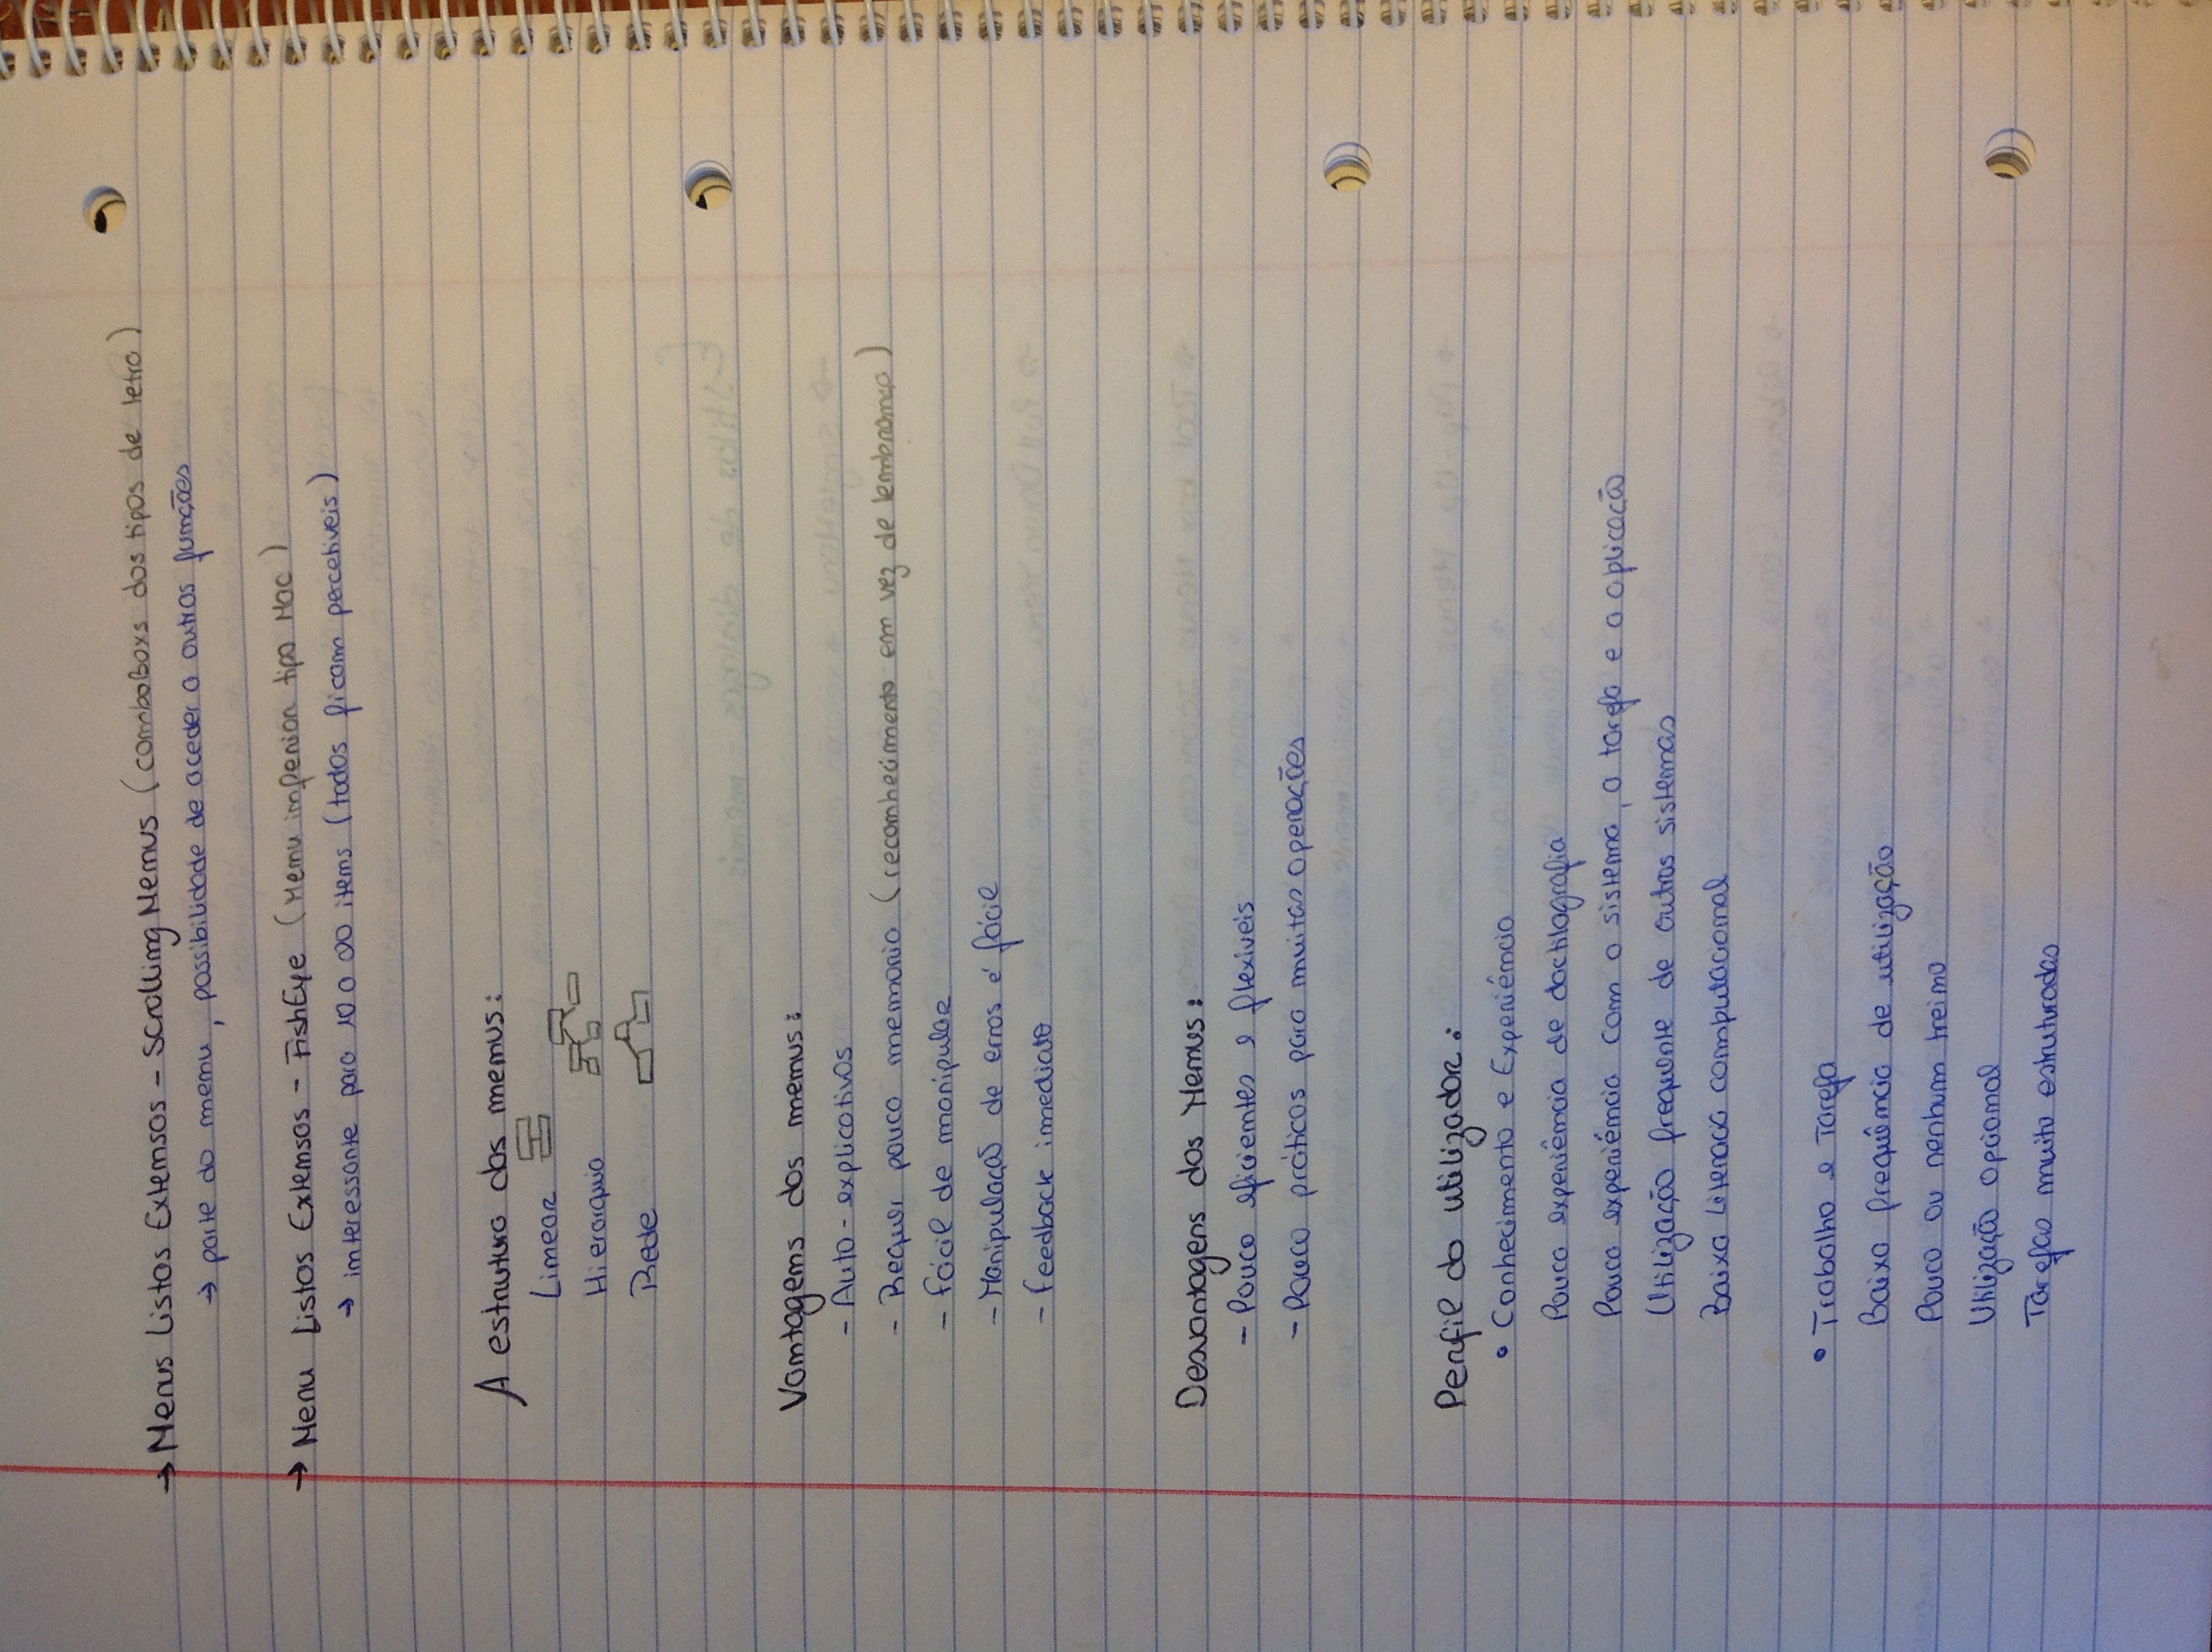 → Menus Listas Extensas - Scrolling Menus (comboBoxs dos tipos de letra)
→ parte do menu, possibilidade de aceder a outras funções
→ Menu Listas Extensas - FishEye (Menu inferior tipo Mac)
→ interessante para 10 a 20 items (todos ficam percetiveis)
A estrutura dos menus:
Linear
Hierarquia
Rede
Vantagens dos menus:
- Auto-explicativos
- Requer pouca memoria (reconhecimento em vez de lembrança)
- Fácil de manipular
- Manipulação de erros é fácil
- Feedback imediato
Desvantagens dos Menus:
- Pouco eficientes e flexiveis
- Pouco práticos para muitas operações
Perfil do utilizador:
• Conhecimento e Experiência
Pouca experiência de dactilografia
Pouca experiência com o sistema, a tarefa e a aplicação
Utilização frequente de outros sistemas
Baixa literacia computacional
• Trabalho e Tarefa
Baixa frequência de utilização
Pouco ou nenhum treino
Utilização opcional
Tarefas muito estruturadas